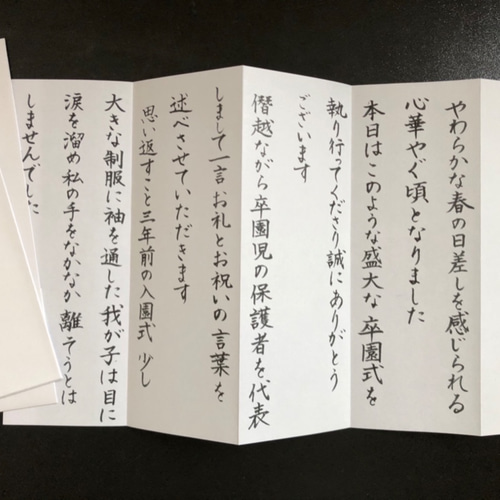 やわらかな春の日差しを感じられる
心華やぐ頃となりました
本日はこのような盛大な卒園式を
執り行ってくださり誠にありがとう
ございます
僭越ながら卒園児の保護者を代表
しまして一言お礼とお祝いの言葉を
述べさせていただきます
思い返すこと三年前の入園式 少し
大きな制服に袖を通した我が子は目に
涙を溜め私の手をなかなか離そうとは
しませんでした